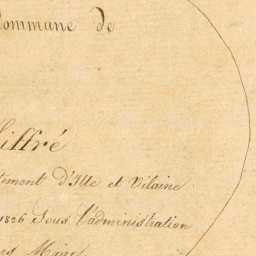 Commune de
iffré
tement d'Ille et Vilaine
1826 Sous l'administration